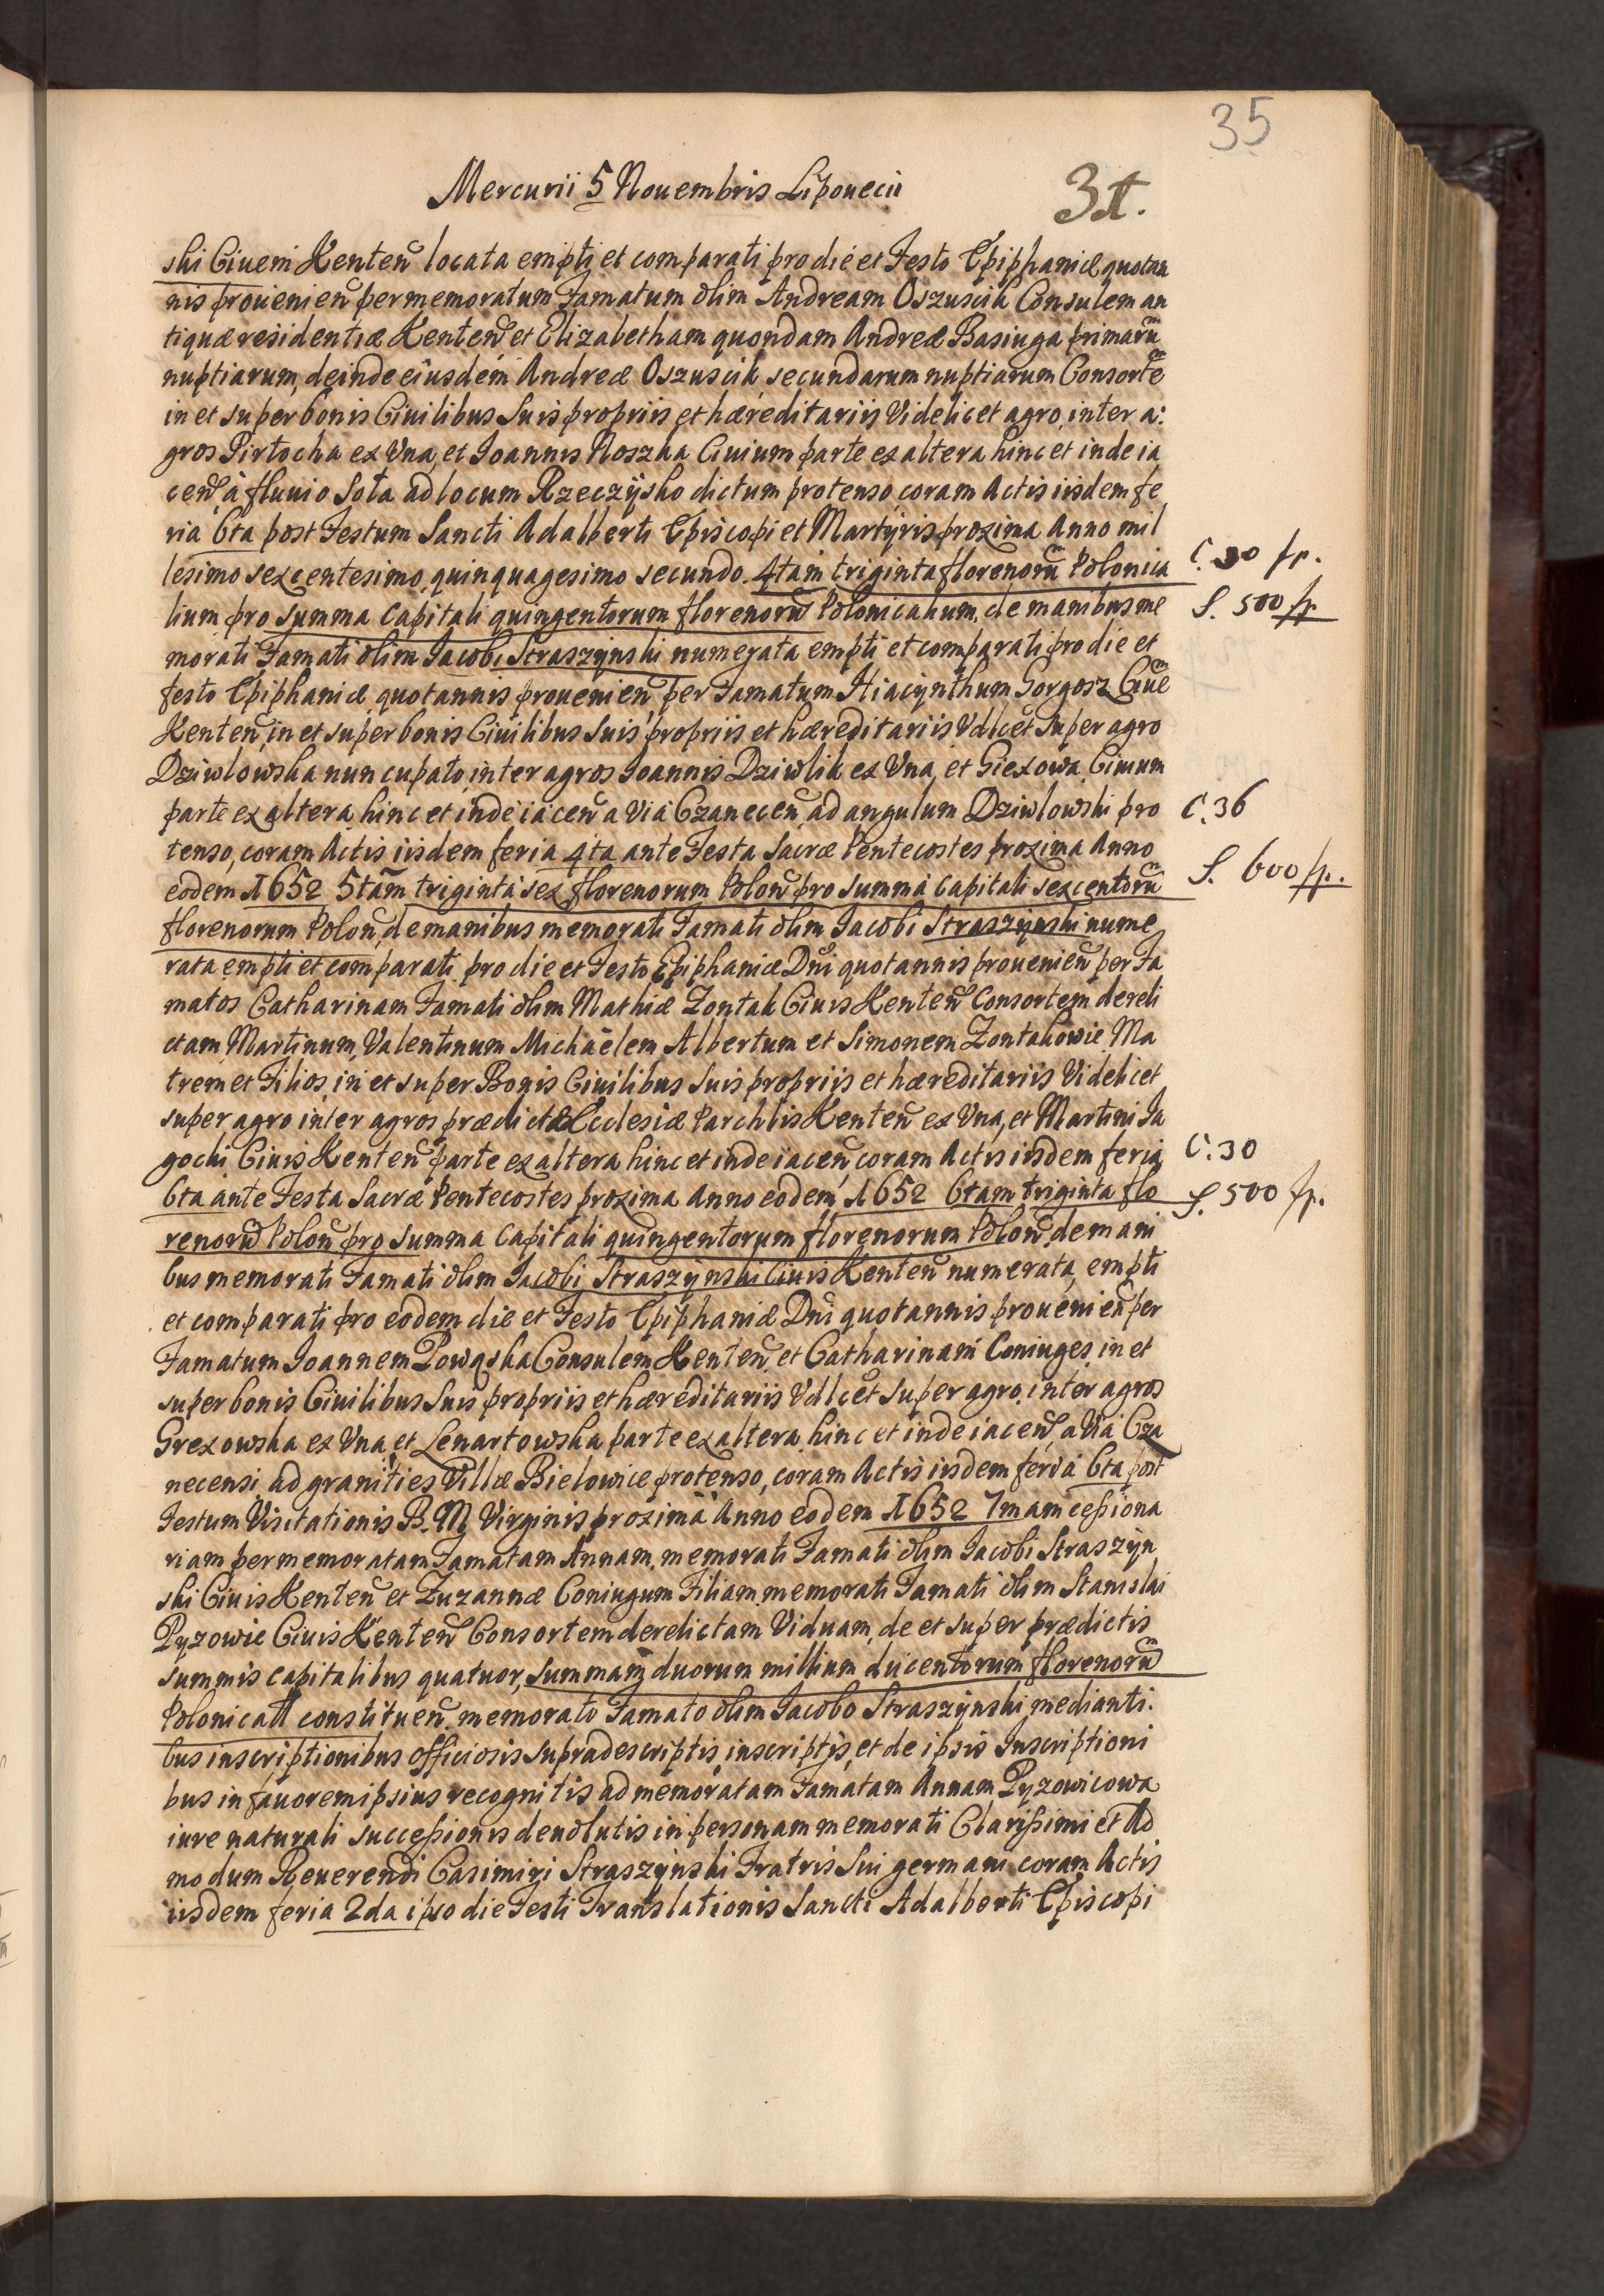 35
Mercurii 5 Nouembris Lipouecii
31.
ski Ciuem Kenteñ locata empti et comparati pro die et Festo Epiphaniæ quotan
nis prouenieñ per memoratum Famatum olim Andream Oszuscik Consulem an
tiquæ residentiæ Kenteñ et Elizabetham quondam Andreæ Basiuga primarũ
nuptiarum, deinde eiusdem Andreæ Oszuscik secundarum nuptiarum Consortẽ
in et super bonis Ciuilibus Suis propriis et hæreditariis Videlicet agro, inter a:
gros Pirtocha ex Vna, et Joannis Noszka Ciuium parte ex altera hinc et inde ia
ceñ, à fluuio Soła ad locum Rzeczÿsko dictum protenso, coram Actis iisdem fe
ria 6ta post Festum Sancti Adalberti Episcopi et Martÿris proxima Anno mil
lesimo sexcentesimo quinquagesimo secundo. 4tam triginta florenorũ Polonica
C. 30 fp.
lium pro summa Capitali quingentorum florenorũ Polonicalium, de manibus me
S. 500 fp
morati Famati olim Jacobi Straszÿnski numerata empti et comparati pro die et
festo Epiphaniæ quotannis prouenieñ per Famatum Hiacÿnthum Gorgosz Ciuẽ
Kenteñ, in et super bonis Ciuilibus Suis propriis et hæreditariis Vdlcet super agro
Dziwlowska nuncupato, inter agros Joannis Dziwlik ex Vna, et Giexowa Ciuium
parte ex altera hinc et inde iaceñ a Via Czaneceñ ad angulum Dziwlowski pro
C. 36
tenso, coram Actis iisdem feria 4ta ante Festa Sacræ Pentecostes proxima Anno
eodem 1652 5tam triginta sex florenorum Poloñ pro summa Capitali sexcentorũ
S. 600 fp.
florenorum Poloñ, de manibus memorati Famati olim Jacobi Straszÿnski nume
rata empti et comparati pro die et Festo Epiphaniæ Dni quotannis prouenieñ per Fa
matos Catharinam Famati olim Mathiæ Zontak Ciuis Kenteñ Consortem dereli
ctam Martinum, Valentinum Michaëlem Albertum et Simonem Zontakowie Ma
trem et Filios, in et super Bonis Ciuilibus Suis propriis et hæreditariis Videlicet
super agro inter agros prædictæ Ecclesiæ Parchlis Kenteñ ex Vna, et Martini Ja
gocki Ciuis Kenteñ parte ex altera hinc et inde iaceñ coram Actis iisdem feria
C. 30
6ta ante Festa Sacræ Pentecostes proxima Anno eodem 1652 6tam triginta flo
S. 500 fp.
renorũ Poloñ pro summa Capitali quingentorum florenorum Poloñ, de mani
bus memorati Famati olim Jacobi Straszÿnski Ciuis Kenteñ numerata, empti
et comparati pro eodem die et Festo Epiphaniæ Dni quotannis prouenieñ per
Famatum Joannem Powąska Consulem Kenteñ et Catharinam Coniuges, in et
super bonis Ciuilibus Suis propriis et hæreditariis Vdlcet super agro inter agros
Grexowska ex Vna, et Lenartowska parte ex altera hinc et inde iaceñ, a Via Cza
necensi ad granities Villæ Bielowice protenso, coram Actis iisdem feria 6ta post
Festum Visitationis B. M. Virginis proxima Anno eodem 1652 7mam ceßiona
riam per memoratam Famatam Annam, memorati Famati olim Jacobi Straszÿn
ski Ciuis Kenteñ et Zuzannæ Coniugum Filiam memorati Famati olim Stanislai
Pyzowic Ciuis Kenteñ Consortem derelictam Viduam, de et super prædictis
summis capitalibus quatuor, summam duorum millium ducentorum florenorũ
Polonicall constitueñ memorato Famato olim Jacobo Straszÿnski medianti:
bus inscriptionibus officiosis supradescriptis inscriptis, et de ipsis Inscriptioni
bus in fauorem ipsius recognitis ad memoratam Famatam Annam Pyzowicowa
iure naturali succeßionis deuolutis in personam memorati Clarißimi et Ad
modum Reuerendi Casimiri Straszÿnski Fratris Sui germani coram Actis
iisdem feria 2da ipso die Festi Translationis Sancti Adalberti Episcopi